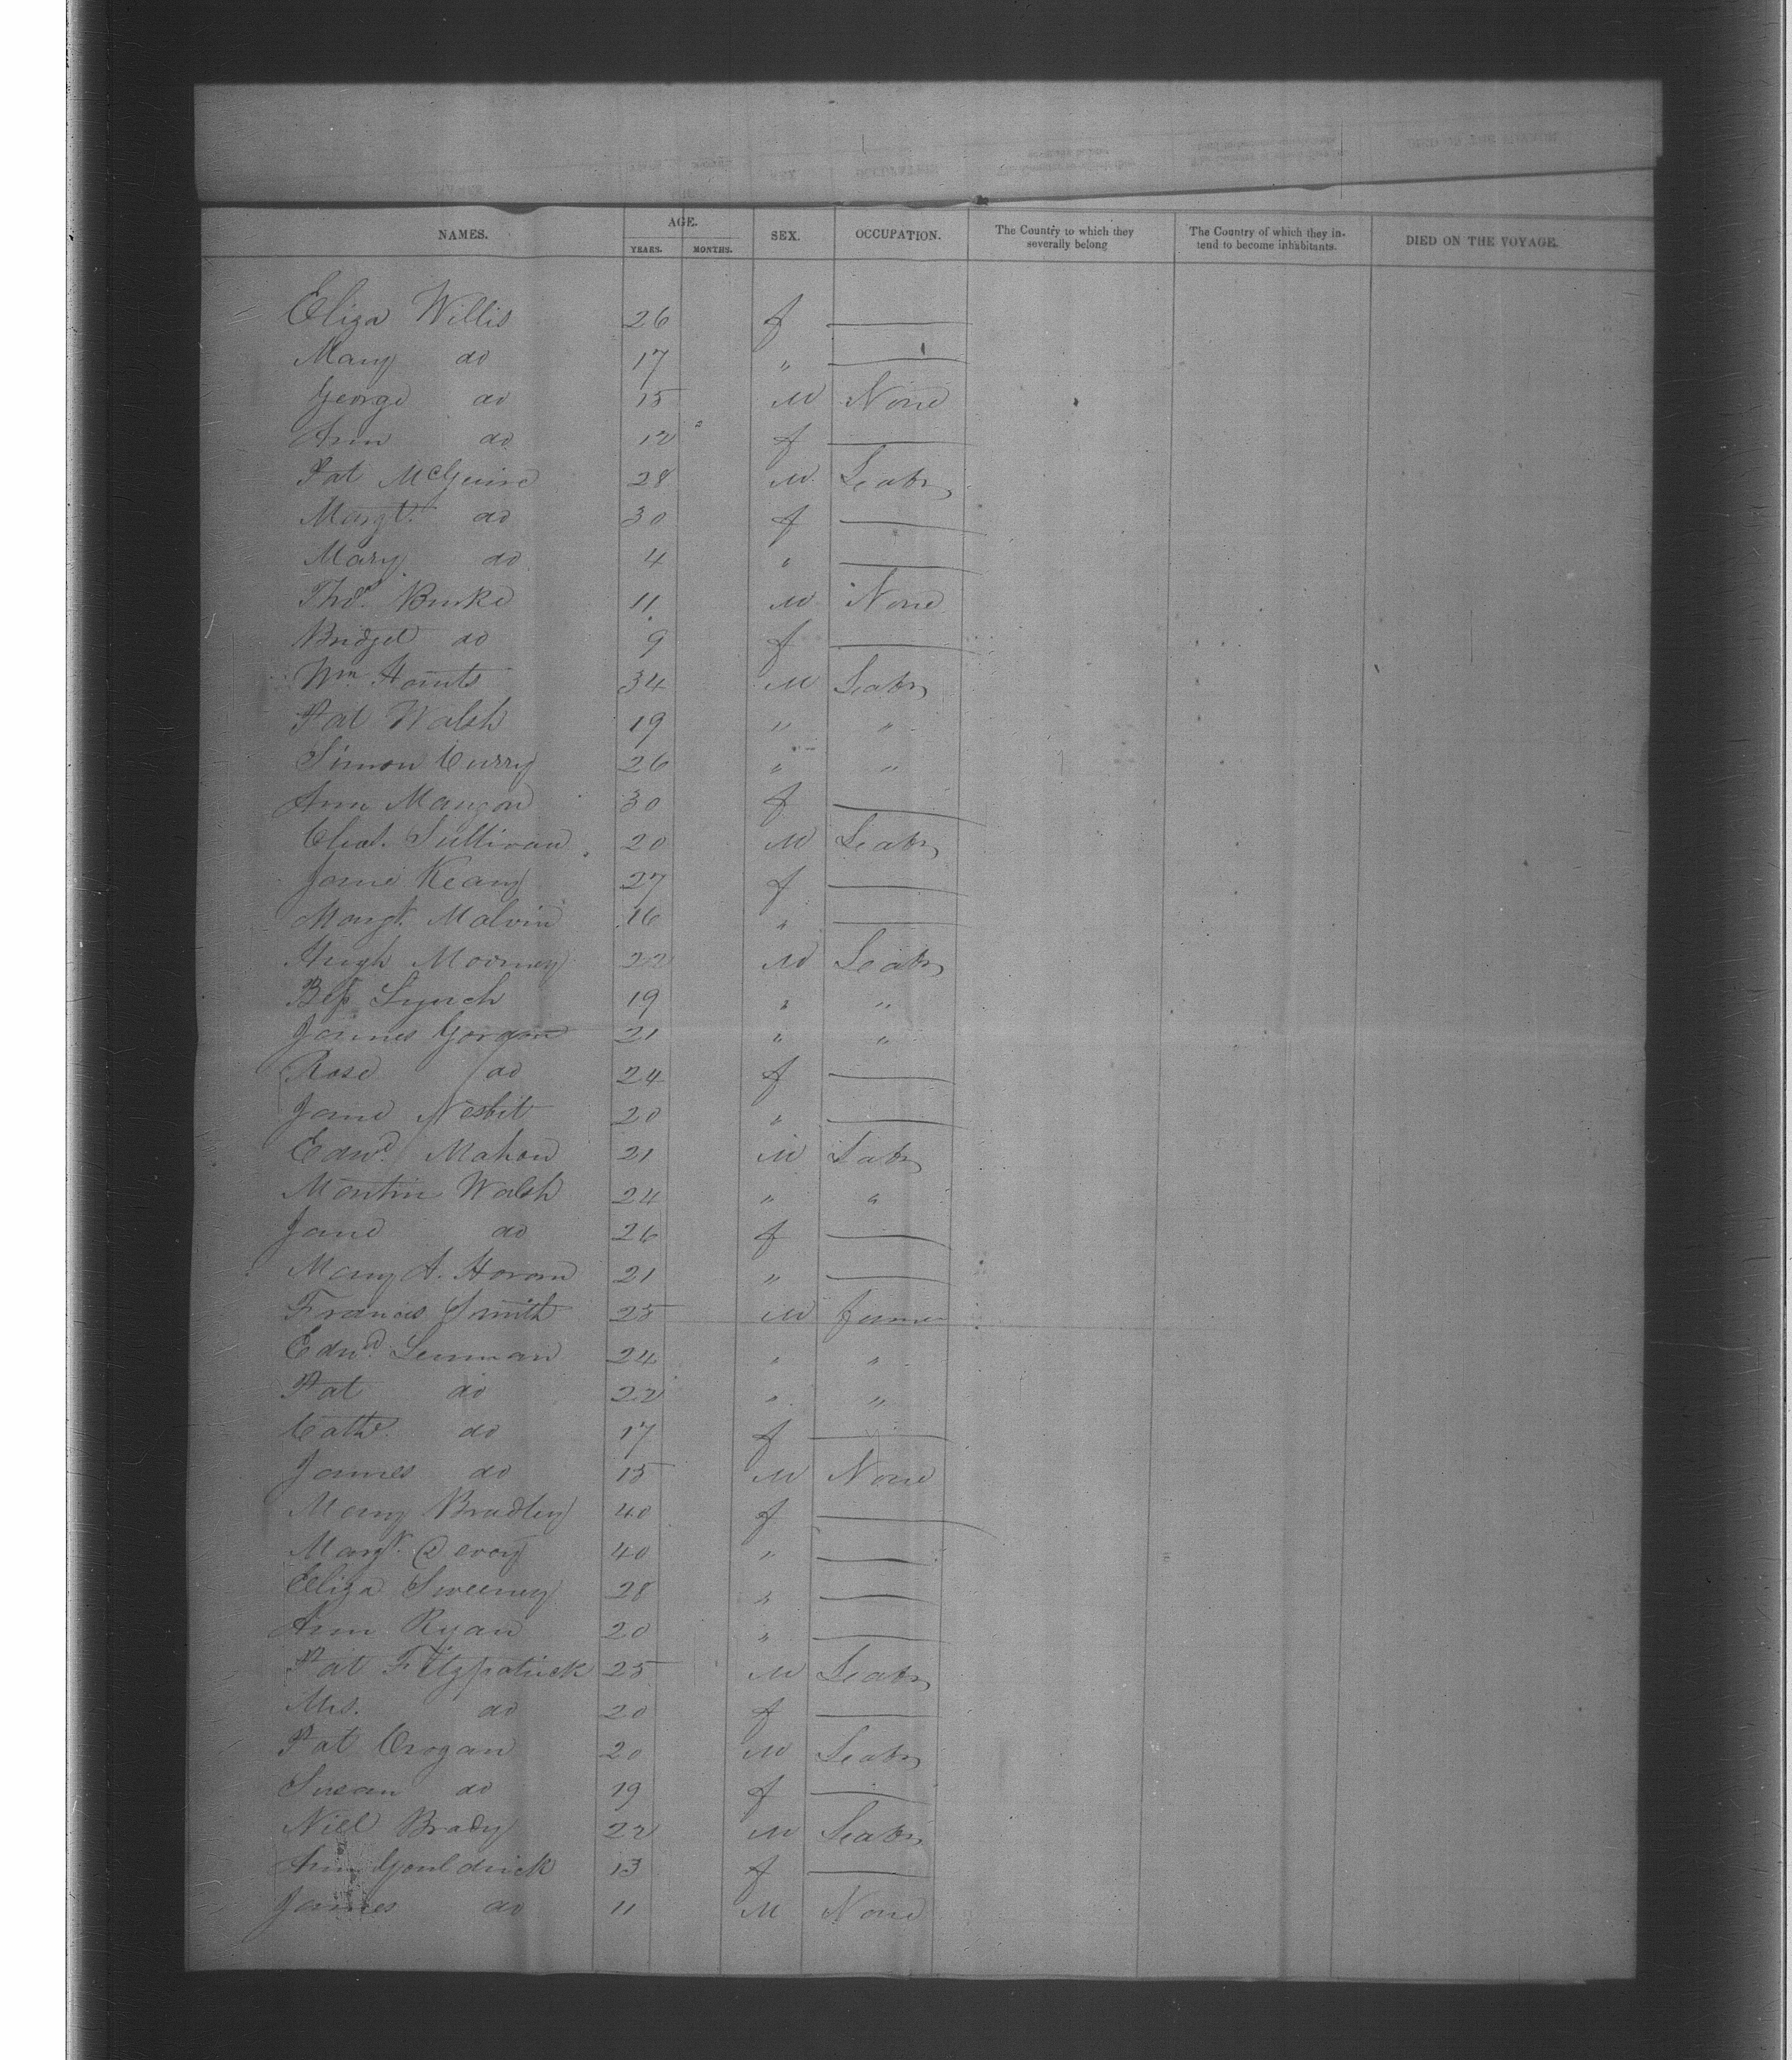 NAMES. AGE. YEARS. MONTHS. SEX. OCCUPATION. The Country to which they severally belong The Country of which they intend to become inhabitants. DIED ON THE VOYAGE.
Eliza Willis 26 f —
Mary do 17 " —
George do 15 M None
Ann do 12 f —
Pat McGuire 28 M Labr
Margt. do 30 f —
Mary do 4 " —
Thos. Burke 11 M None
Bridget do 9 f —
Wm 34 M Labr
Pat Walsh 19 " "
Simon Curry 26 " "
Ann Mangon 30 f —
Chas. Sullivan 20 M Labr
Jane Keany 27 f —
Margt. Malvin 16 " —
Hugh Moorney 22 M Labr
Lynch 19 " "
James Gordon 21 " "
Rose do 24 f —
Jane Nesbit 20 " —
Edwd. Mahon 21 M Labr
Martin Walsh 24 " "
Jane do 26 f —
Mary A. Horan 21 " —
Francis Smith 25 M farmer
Edwd. Lennan 24 " "
Pat do 22 " "
Cathe. do 17 f —
James do 15 M None
Mary Bradley 40 f —
Margt. Devoy 40 " —
Eliza Sweeney 28 " —
Ann Ryan 20 " —
Pat Fitzpatrick 25 M Labr
Mrs. do 20 f —
Pat Crogan 20 M Labr
Susan do 19 f —
Niel Brady 22 M Labr
Ann Gouldrick 13 f —
James do 11 M None